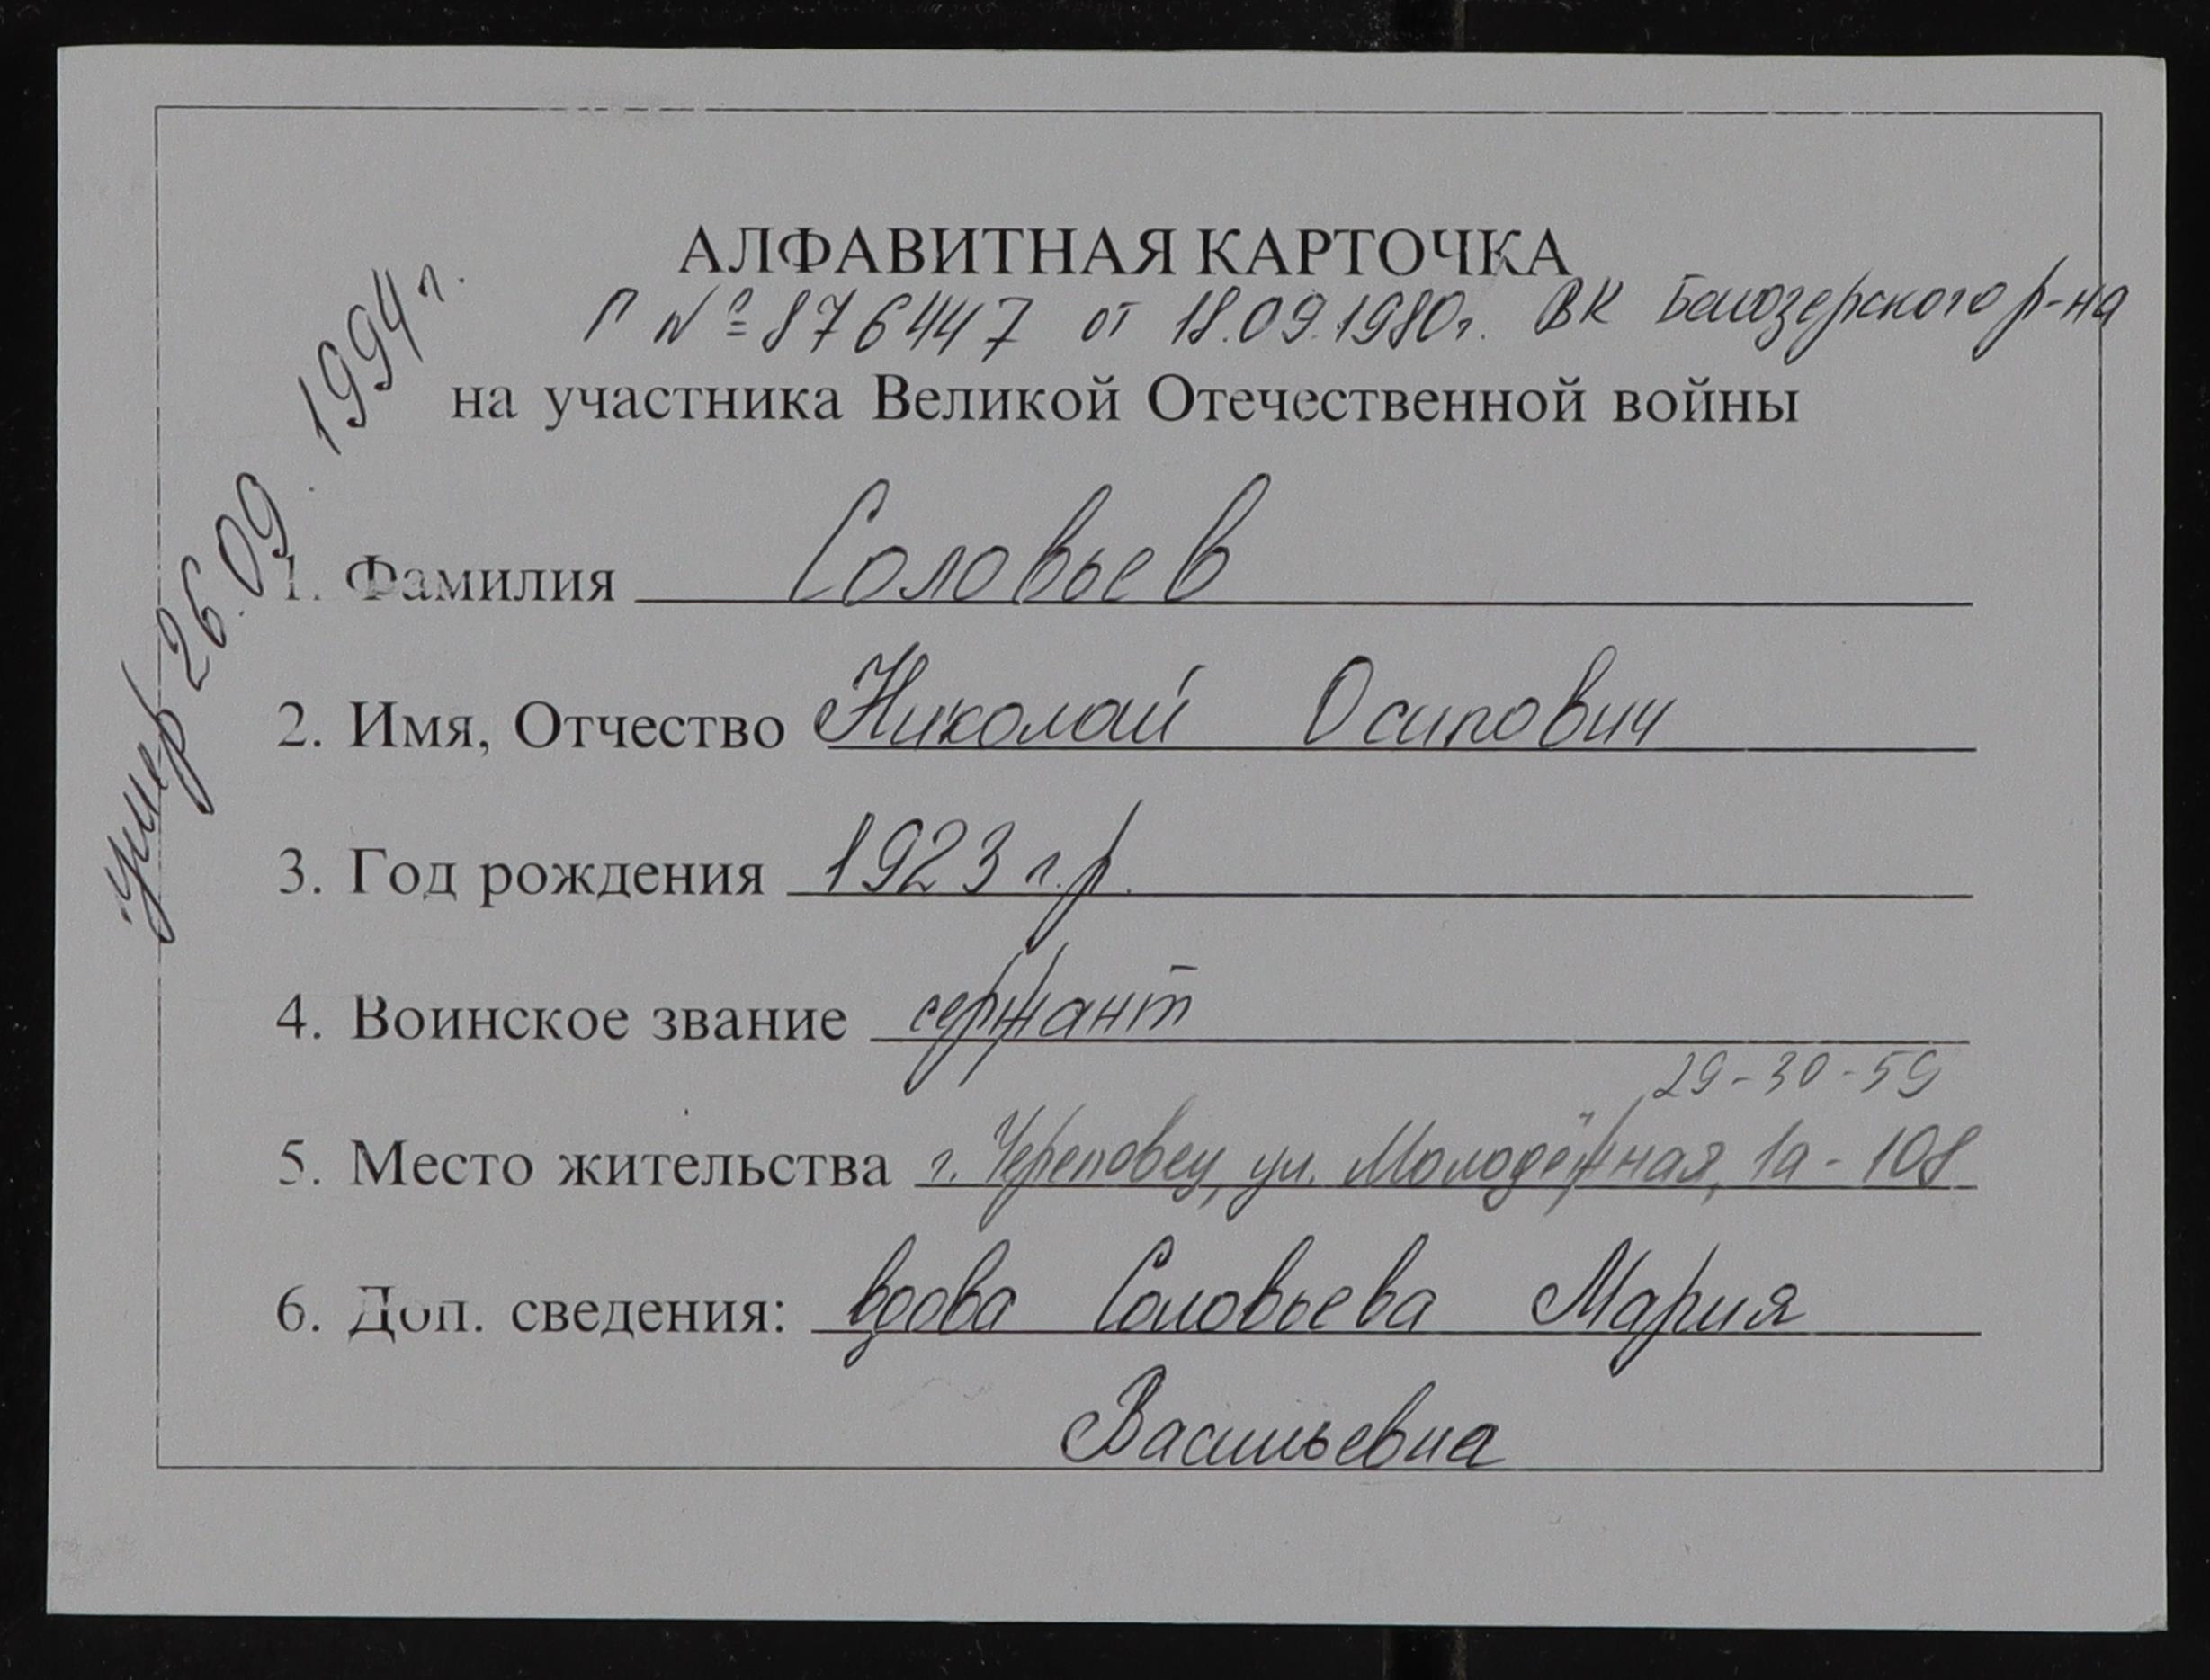 АЛФАВИТНАЯ КАРТОЧКА
Г №876447 от 18.09.1980г. ВК Белозерского р-на
на участника Великой Отечественной войны
умер 26.09.1994г.
1. Фамилия Соловьев
2. Имя, Отчество Николай Осипович
3. Год рождения 1923 г.р.
4. Воинское звание сержант
29-30-59
5. Место жительства г. Череповец, ул. Молодёжная, 1а-108
6. Доп. сведения: вдова Соловьева Мария
Васильевна